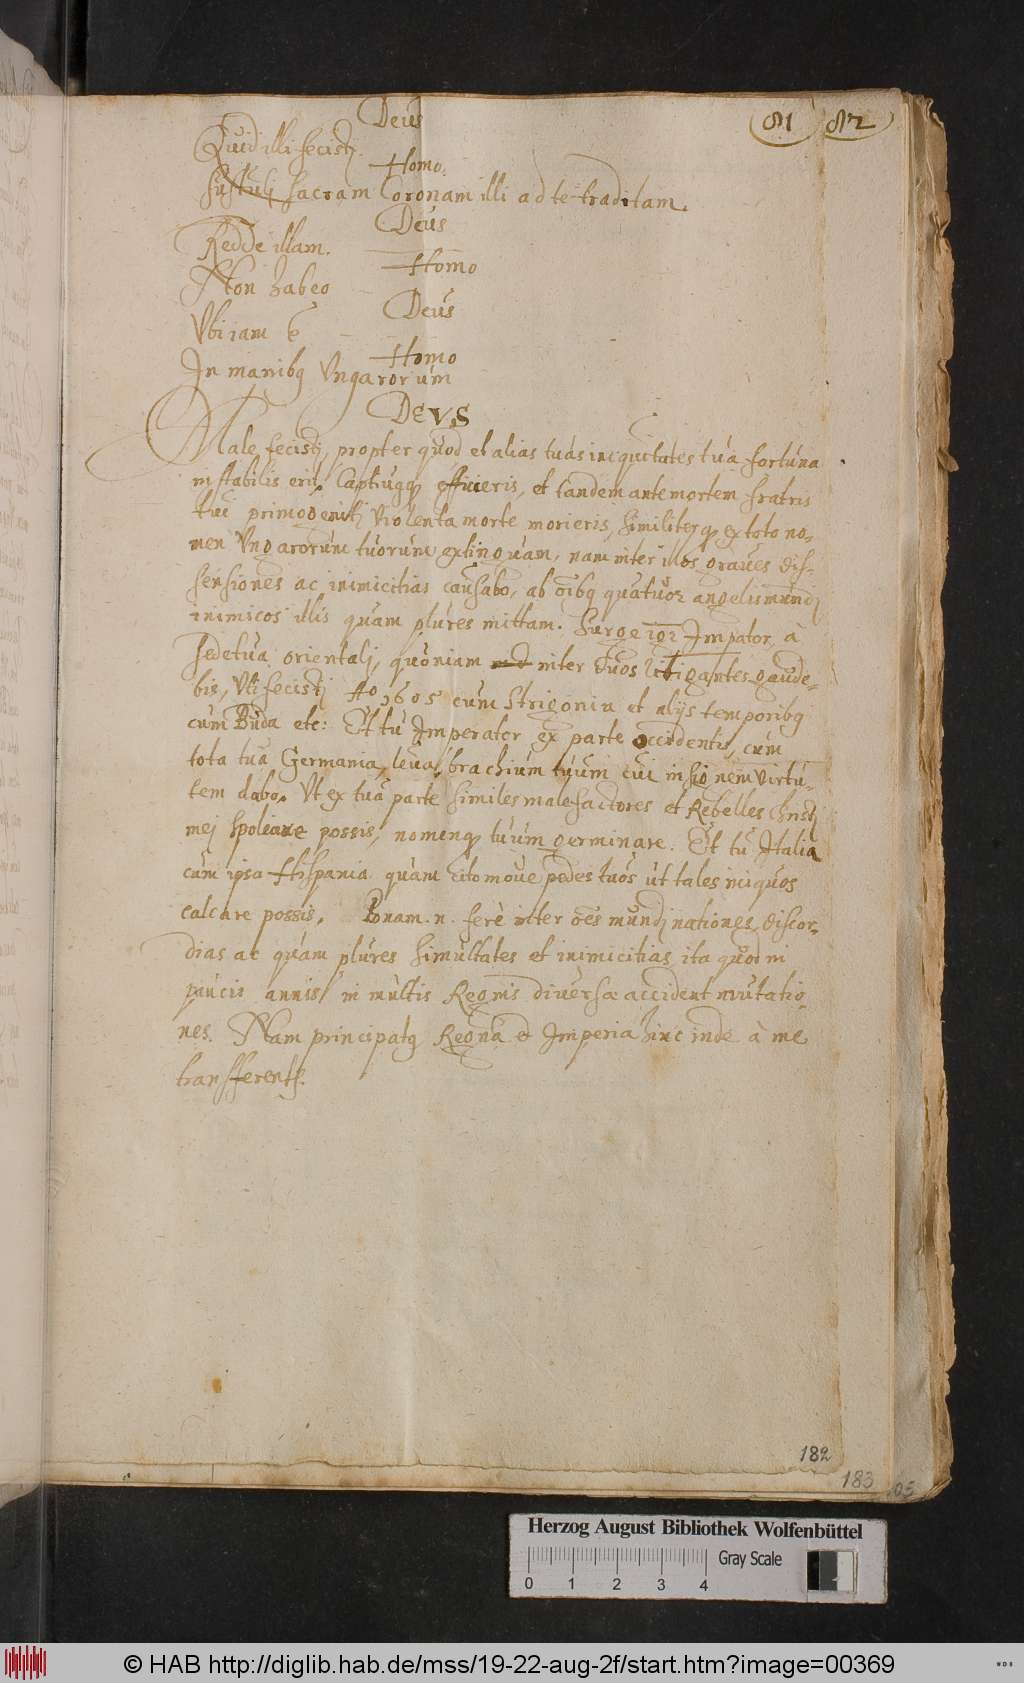 81 82
Deus
Quid illi fecistj.
Homo.
Sustulj sacram Coronam illi ad te traditam.
Deus
Redde illam.
Homo
Non habeo
Deus
Vbi iam e
Homo
In manibq Vngarorum
DEVS
Male fecistj, propter quod et alias tuas inequitates tua fortuna
instabilis erit, Captiuqq efficieris, et tandem ante mortem fratris
tui primogenitj violenta morte morieris, similiterq ex toto no-
men Vngarorum tuorum extinguam, nam inter illos graues dis-
sensiones ac inimicitias causabo, ab oibq quatuor angelis mundj
inimicos illis quam plures mittam. Surge Impator à
sede tua orientalj, quoniam inter tuos litigantes gaude-
bis, Vti fecistj Ao 1605 cum Strigonia et alijs temporibq
cum Buda etc: Et tu Imperator ex parte occidentis, cum
tota tua Germania, leua brachium tuum cui insig nem virtu-
tem dabo. Vt ex tua parte similes malefactores et Rebelles Christj
mej spoliare possis, nomenq tuum germinare. Et tu Italia
cum ipsa Hispania quam cito moue pedes tuos ut tales iniquos
calcare possis. Ponam .n. ferè inter oes mundj nationes, discor-
dias ac quam plures simultates et inimicitias, ita quod in
paucis annis, in multis Regnis diuersæ accident mutatio
nes. Nam principatq Regna et Imperia hinc inde à me
transferents.
182
183
Herzog August Bibliothek Wolfenbüttel
Gray Scale
0 1 2 3 4
© HAB http://diglib.hab.de/mss/19-22-aug-2f/start.htm?image=00369